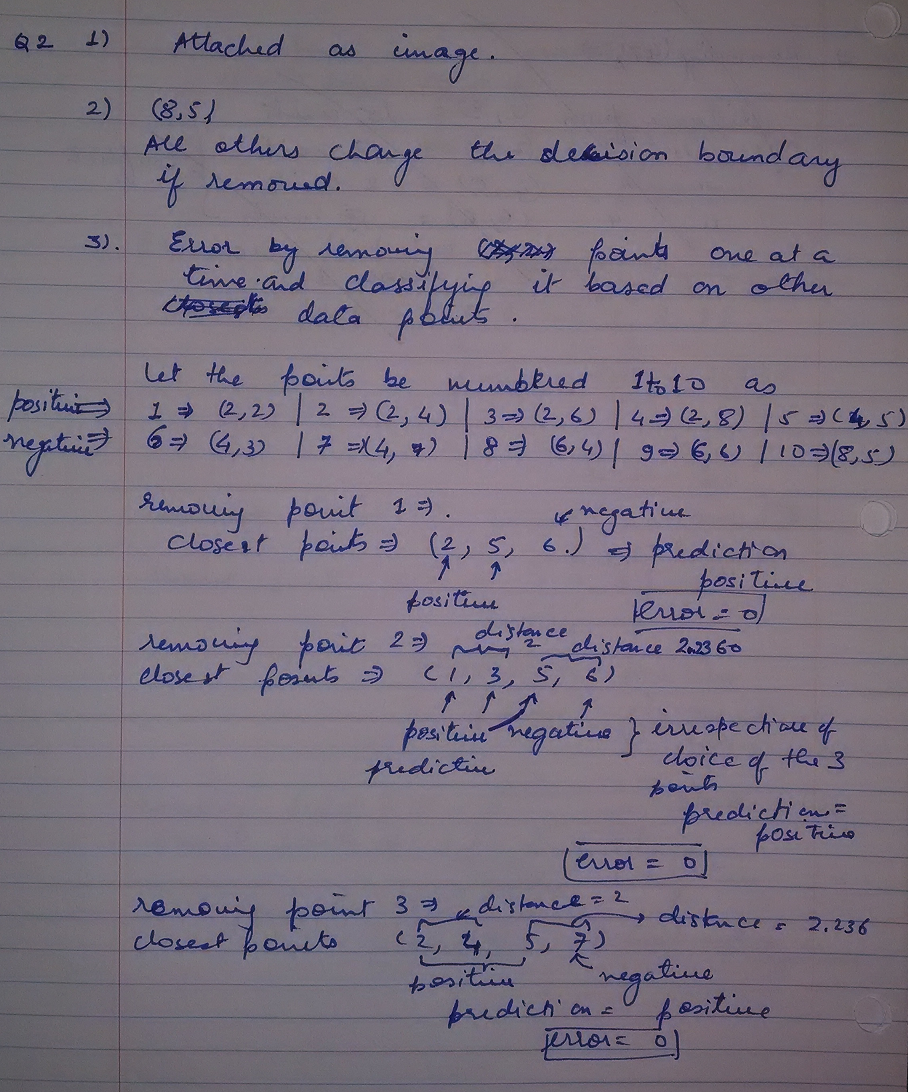 Q2 1) Attached as image.
2) (8,5)
All others change the decision boundary
if removed.
3). Error by removing points one at a
time and classifying it based on other
data points.
Let the points be numbered 1 to 10 as
positive ⇒ 1 ⇒ (2,2) | 2 ⇒ (2,4) | 3 ⇒ (2,6) | 4 ⇒ (2,8) | 5 ⇒ (4,5)
negative ⇒ 6 ⇒ (4,3) | 7 ⇒ (4,7) | 8 ⇒ (6,4) | 9 ⇒ (6,6) | 10 ⇒ (8,5)
removing point 1 ⇒. negative
closest points ⇒ (2, 5, 6.) ⇒ prediction
positive
positive
error = 0
removing point 2 ⇒ distance 2 distance 2.2360
closest points ⇒ (1, 3, 5, 6)
positive negative } irrespective of
predictive choice of the 3
points
prediction =
positive
error = 0
removing point 3 ⇒ distance = 2
closest points (2, 4, 5, 7) → distance = 2.236
positive negative
prediction = positive
error = 0